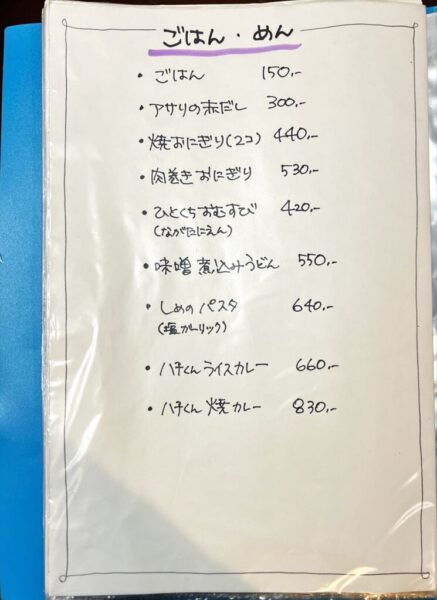 ごはん・めん
・ごはん 150.-
・アサリの赤だし 300.-
・焼おにぎり(2コ) 440.-
・肉巻きおにぎり 530.-
・ひとくちおむすび 420.-
(ながたにえん)
・味噌煮込みうどん 550.-
・しめのパスタ 640.-
(塩ガーリック)
・ハチくんライスカレー 660.-
・ハチくん焼カレー 830.-